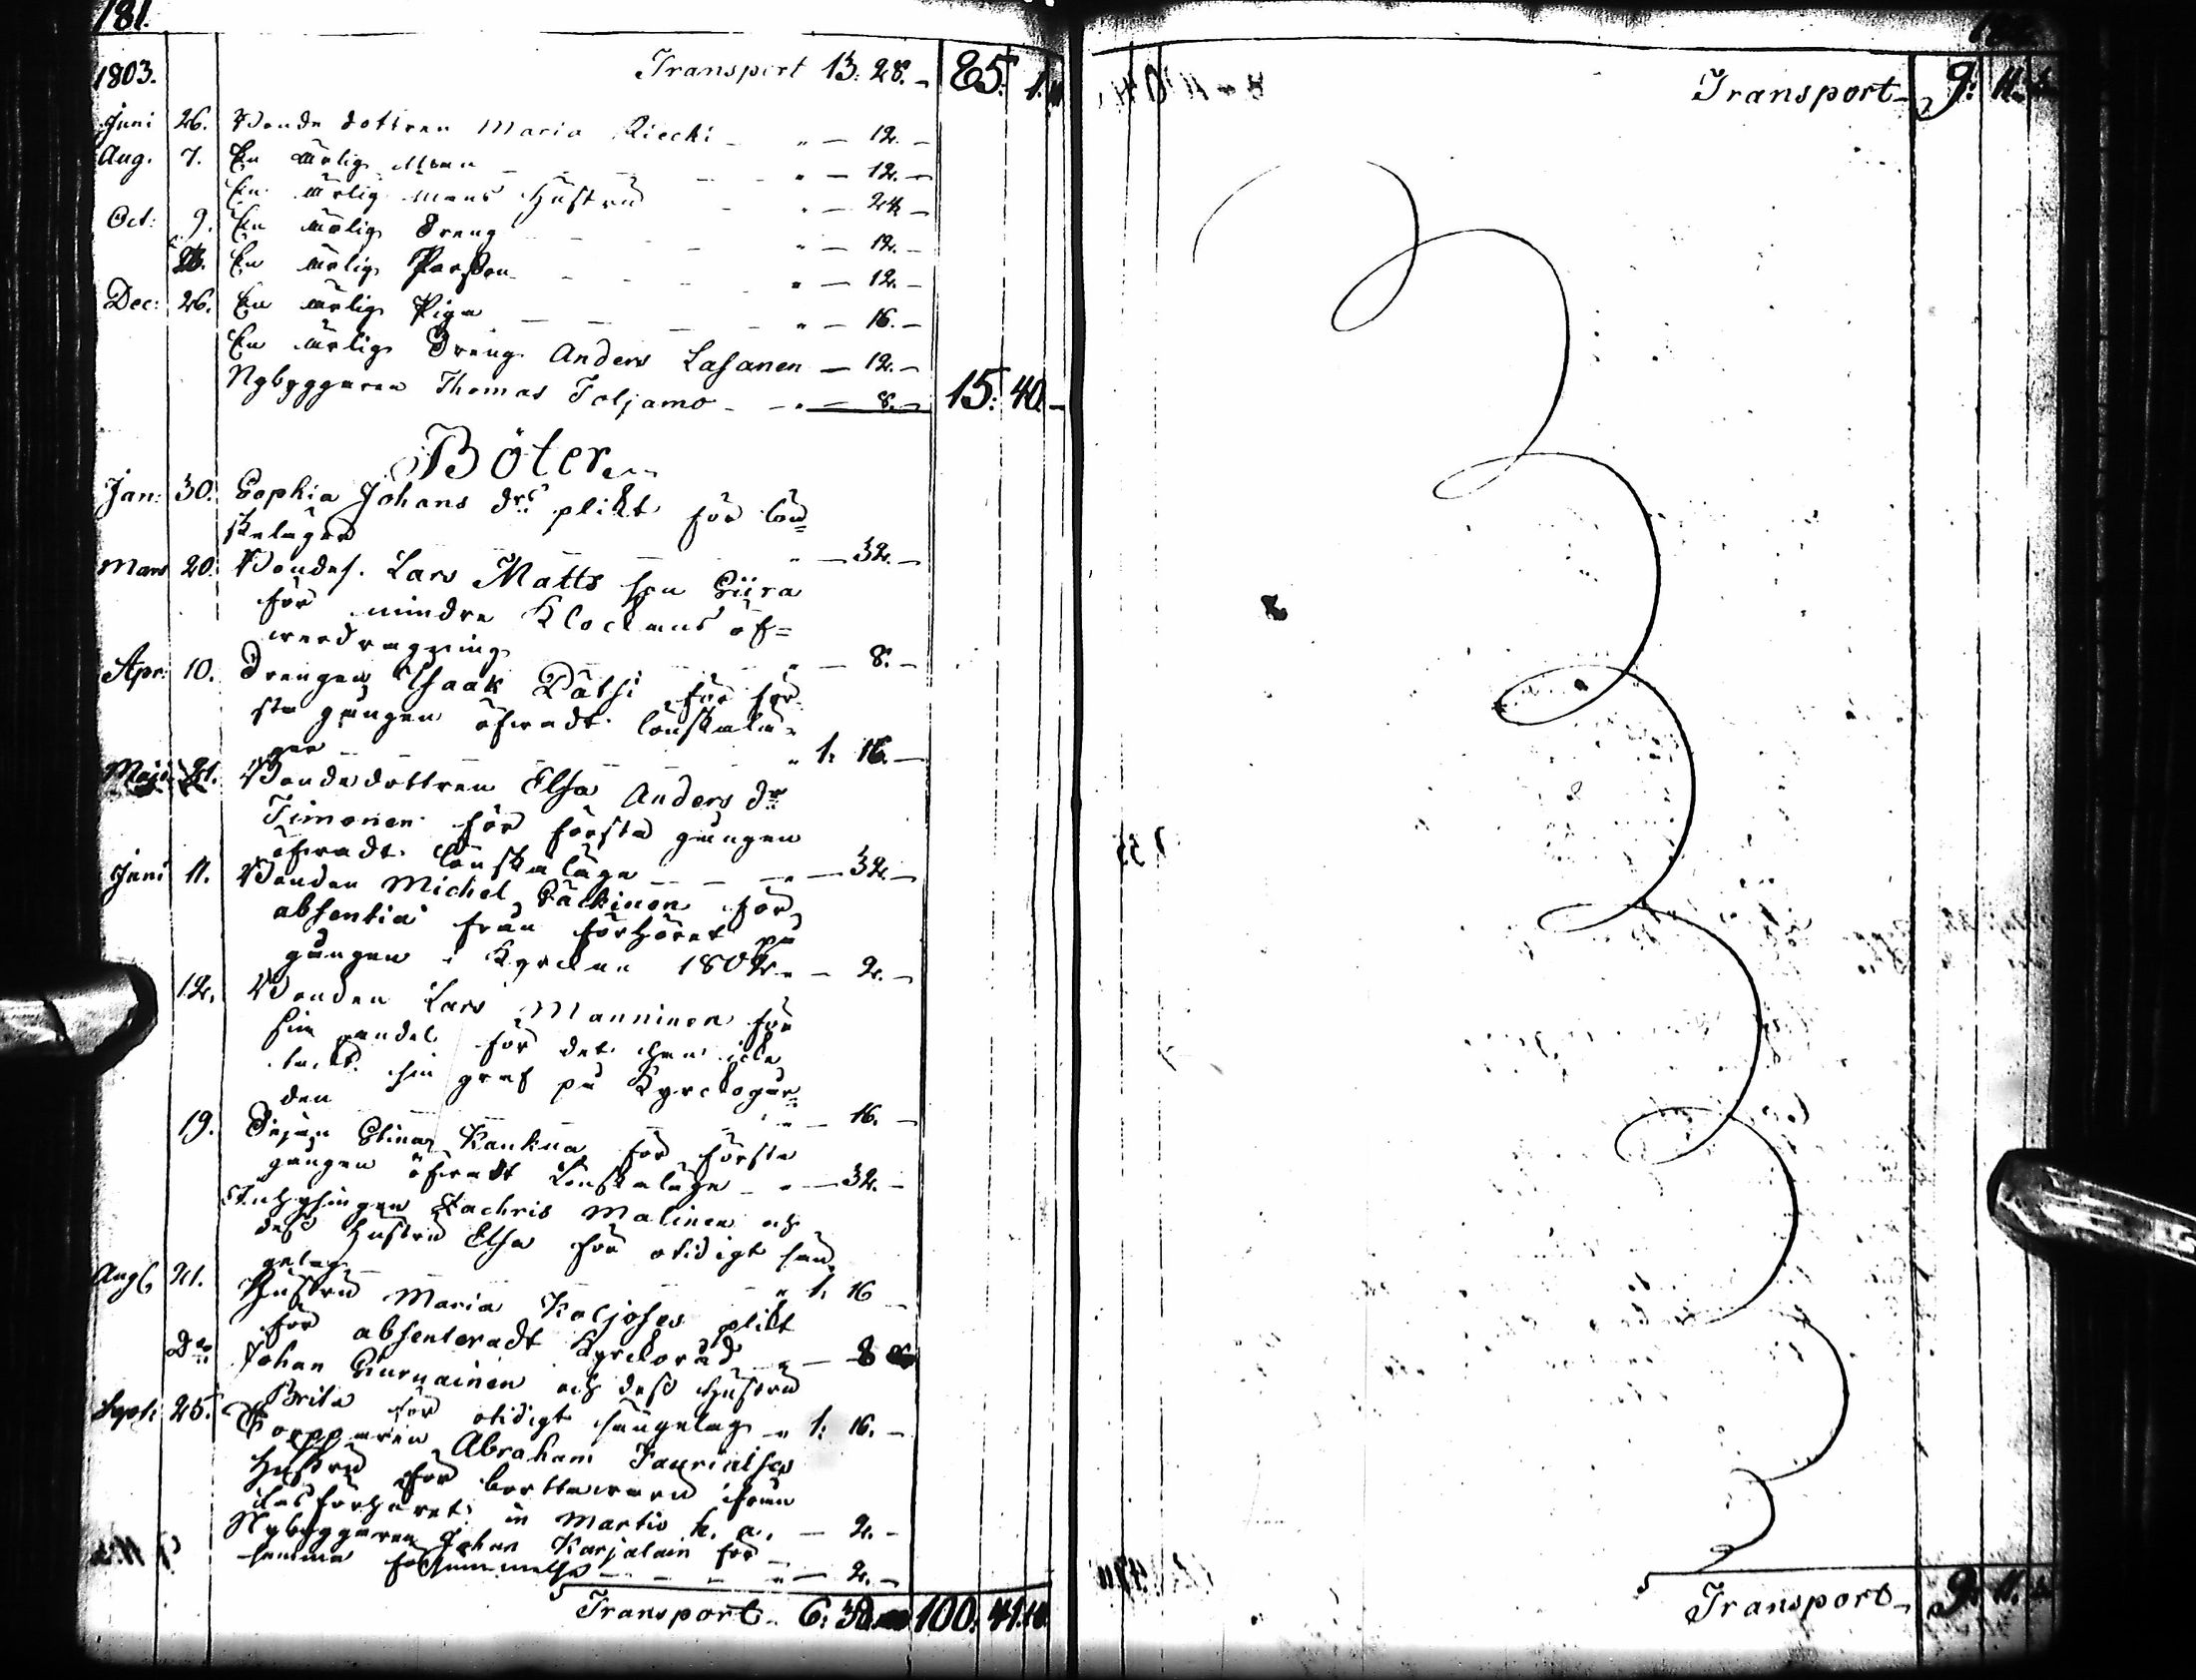 181.
1803. Transport 13. 28. — 85. 1.
Juni 26. Bonde dottren Maria Riecki — „ — 12. —
Aug. 7. En ärlig Man — „ — 12. —
En ärlig mans Hustru — „ — 24 —
Oct: 9. En ärlig Dreng — „ — 12. —
En ärlig Person — „ — 12. —
Dec: 26. En ärlig Piga — „ — 16. —
En ärlig Dreng Anders Lasanen — 12. —
Nybyggaren Thomas Toljamo — „ — 8. — 15: 40. —
Böter
Jan: 30. Sophia Johans drs plikt för lön=
skeläger — „ — 32. —
Mars 20. Bondes. Lars Matts son Siira
för mindre Klockans öf=
werdragning — „ — 8. —
Apr: 10. Drengen Isaak Pätsi för för=
sta gången öfwadt lönskalä=
ger — „ 1: 16. —
Maji 21. Bondedottren Elsa Anders dr
Timonen för första gången
öfwadt lönskaläge — „ — 32 —
Juni 11. Bonden Michel Säckinen för
absentia från förhöret på
gången i Kyrckan 1802 „ — 2. —
12. Bonden Lars Manninen för
sin andel för det han icke
täckt sin graf på Kyrckogår=
den — „ — 16. —
19. Pigan Stina Kaukua för första
gången öfwadt Lönskaläge — „ — 32. —
Inhysingen Zachris Malinen och
dess Hustru Elsa för otidigt sän=
gelag — „ 1: 16 —
Aug. 21. Hustru Maria Koljoses plikt
för absenteradt Kyrckoråd — „ — 8
Do Johan Gurnainen och dess Hustru
Brita för otidigt sängelag — „ 1: 16. —
Sept: 25. Torpparen Abraham Tauriaises
Hustru för borttawaru från
läsförhöret in Martio h. a. — 2. —
Nybyggaren Johan Karjalain för
samma försummelse — „ — 2. —
Transport — 6: 100: 41.
Transport — 9: 11.
Transport — 9: 11.